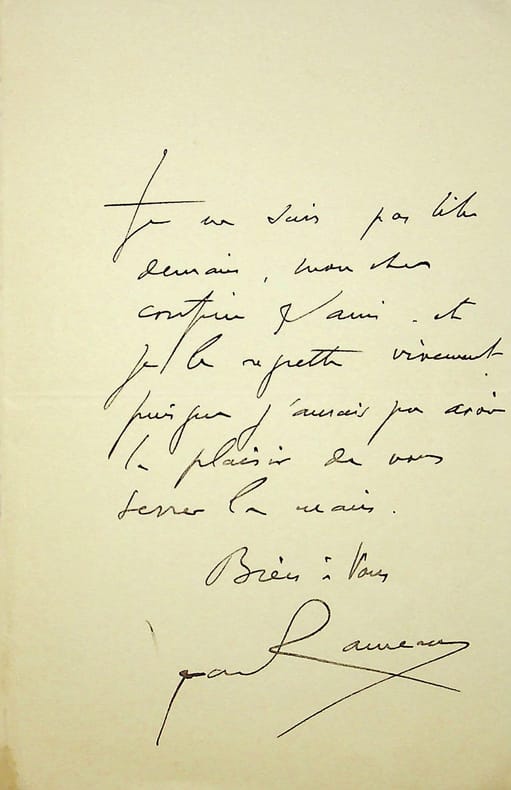 Je ne suis pas libre
demain, mon cher
confrère & ami. et
je le regrette vivement
puisque j'aurais pu avoir
le plaisir de vous
serrer la main.
Bien à Vous
Jean Rameau